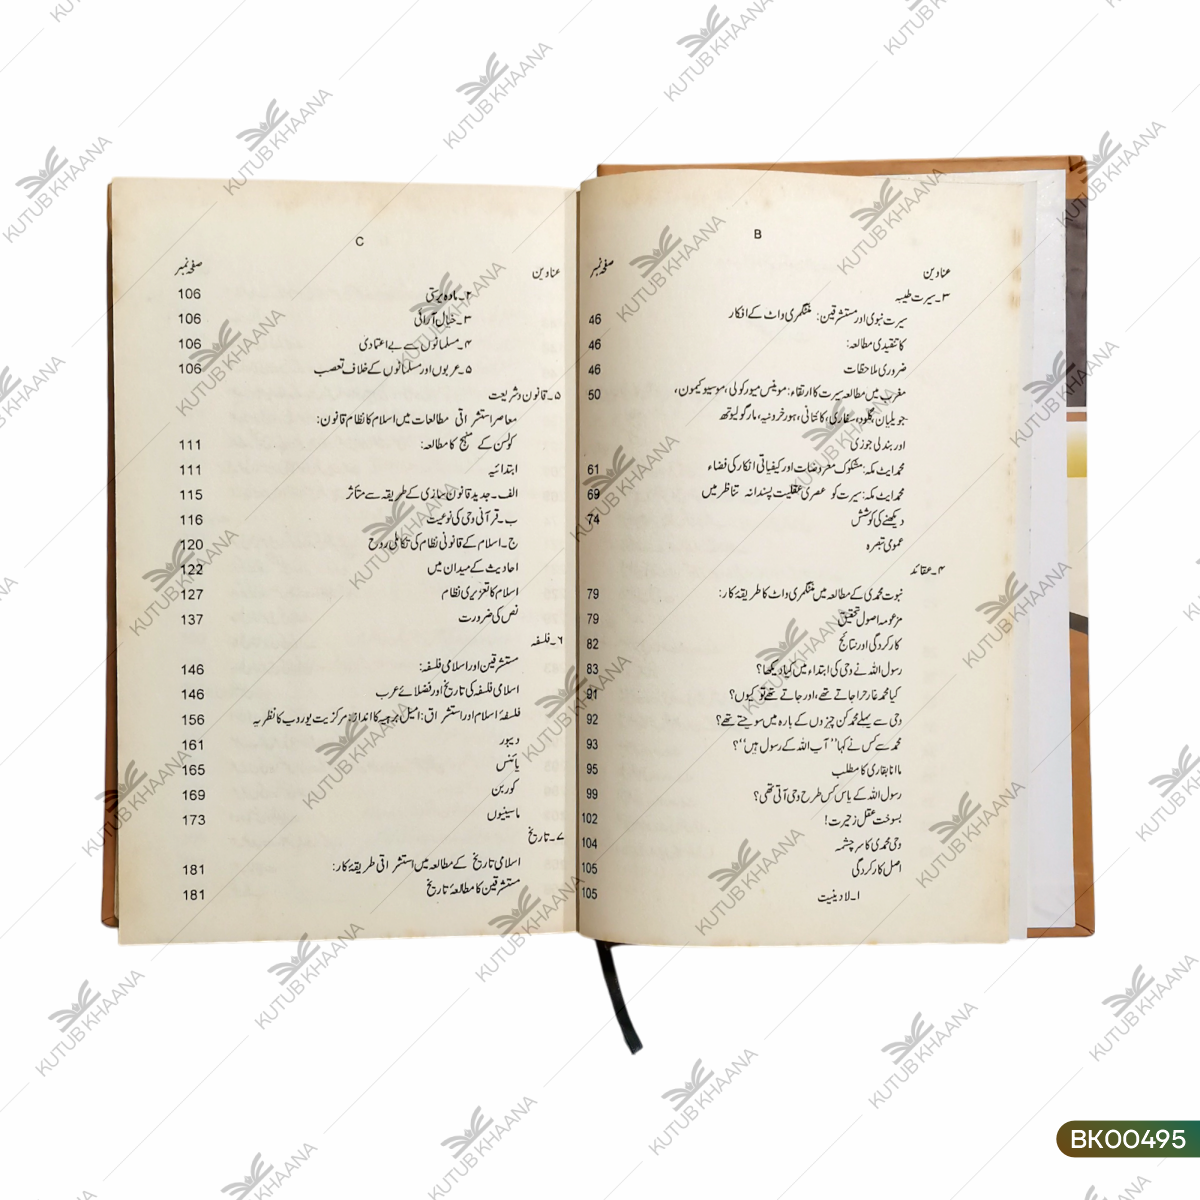 B
عناوین صفحہ نمبر
۳۔ سیرت طیبہ
سیرت نبوی اور مستشرقین: منٹگمری واٹ کے افکار 46
کا تنقیدی مطالعہ: 46
ضروری ملاحظات 46
مغرب میں مطالعہ سیرت کا ارتقاء: موئنس میورکولی، موسیو کیمون، 50
جویلیان، گلود، سفاری، کائتانی، ہورخرونیہ، مارگولیوتھ
اور بندلی جوزی
محمد ایٹ مکہ: مشکوک معروضات اور کیفیاتی انکار کی فضاء 61
محمد ایٹ مکہ: سیرت کو عصری عقلیت پسندانہ تناظر میں 69
دیکھنے کی کوشش 74
عمومی تبصرہ
۴۔ عقائد
نبوت محمدی کے مطالعہ میں منٹگمری واٹ کا طریقۂ کار: 79
مزعومہ اصول تحقیق 79
کارکردگی اور نتائج 82
رسول اللہ نے وحی کی ابتداء میں کیا دیکھا؟ 83
کیا محمد غار حرا جاتے تھے، اور جاتے تھے تو کیوں؟ 91
وحی سے پہلے محمد کن چیزوں کے بارہ میں سوچتے تھے؟ 92
محمد سے کس نے کہا "آپ اللہ کے رسول ہیں"؟ 93
ما انا بقاری کا مطلب 95
رسول اللہ کے پاس کس طرح وحی آتی تھی؟ 99
بسوخت عقل ز حیرت! 102
وحی محمدی کا سرچشمہ 104
اصل کارکردگی 105
۱۔ لادینیت 105
C
عناوین صفحہ نمبر
۲۔ مادہ پرستی 106
۳۔ خیال آرائی 106
۴۔ مسلمانوں سے بے اعتمادی 106
۵۔ عربوں اور مسلمانوں کے خلاف تعصب 106
۵۔ قانون و شریعت
معاصر استشراقی مطالعات میں اسلام کا نظام قانون:
کولسن کے منہج کا مطالعہ: 111
ابتدائیہ 111
الف۔ جدید قانون سازی کے طریقہ سے متاثر 115
ب۔ قرآنی وحی کی نوعیت 116
ج۔ اسلام کے قانونی نظام کی تکاملی روح 120
احادیث کے میدان میں 122
اسلام کا تعزیری نظام 127
نص کی ضرورت 137
۶۔ فلسفہ
مستشرقین اور اسلامی فلسفہ: 146
اسلامی فلسفہ کی تاریخ اور فضلائے عرب 146
فلسفۂ اسلام اور استشراق: امیل برہیہ کا انداز: مرکزیت یوروپ کا نظریہ 156
دیبور 161
یائنس 165
کوربن 169
ماسینیوں 173
۷۔ تاریخ
اسلامی تاریخ کے مطالعہ میں استشراقی طریقۂ کار: 181
مستشرقین کا مطالعۂ تاریخ 181
KUTUB KHAANA
BK00495